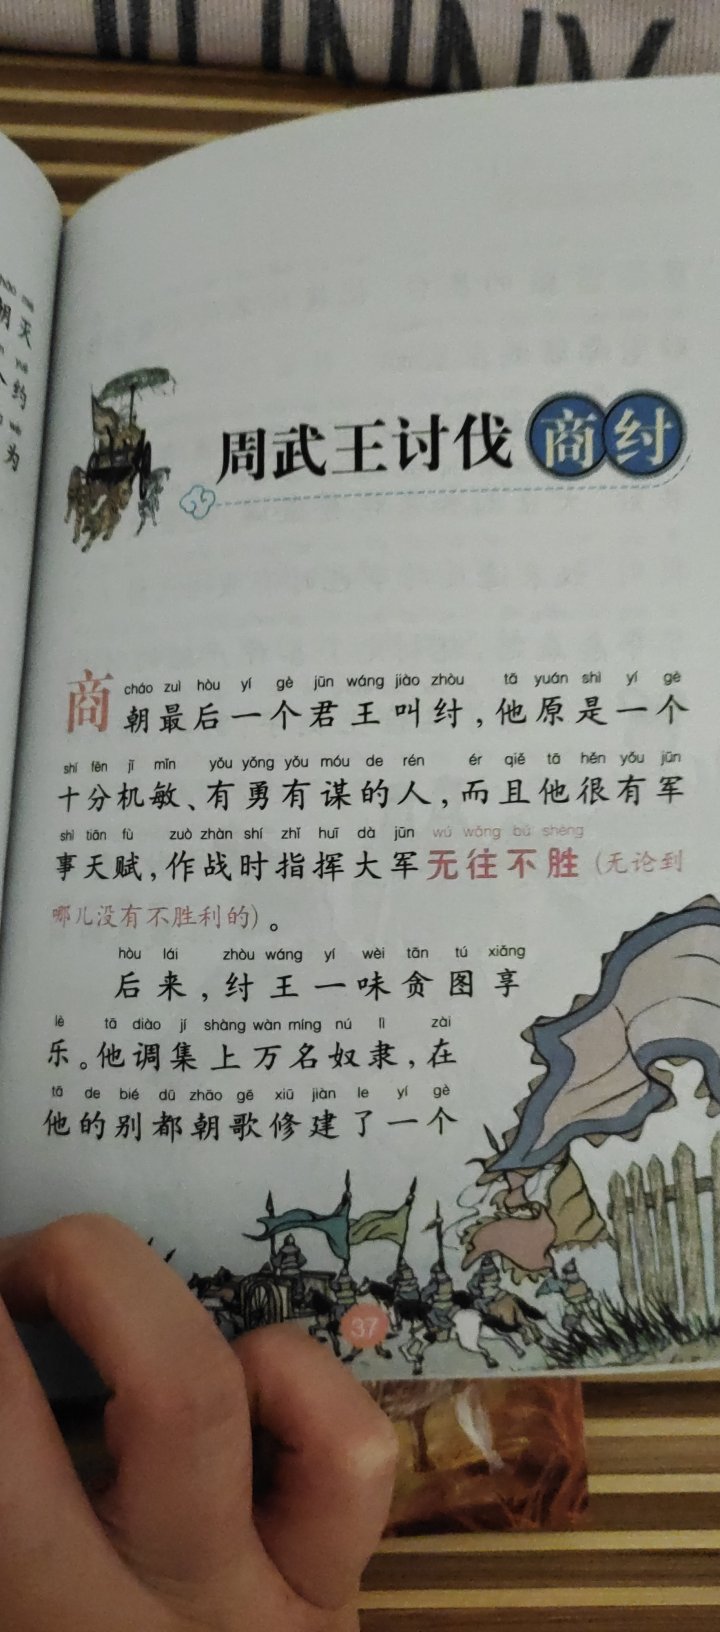 周武王讨伐商纣
cháo zuì hòu yí gè jūn wáng jiào zhòu tā yuán shì yí gè
商朝最后一个君王叫纣，他原是一个
shí fēn jī mǐn yǒu yǒng yǒu móu de rén ér qiě tā hěn yǒu jūn
十分机敏、有勇有谋的人，而且他很有军
shì tiān fù zuò zhàn shí zhǐ huī dà jūn wú wǎng bú shèng
事天赋，作战时指挥大军无往不胜（无论到
哪儿没有不胜利的）。
hòu lái zhòu wáng yí wèi tān tú xiǎng
后来，纣王一味贪图享
lè tā diào jí shàng wàn míng nú lì zài
乐。他调集上万名奴隶，在
tā de bié dū zhāo gē xiū jiàn le yí gè
他的别都朝歌修建了一个
37